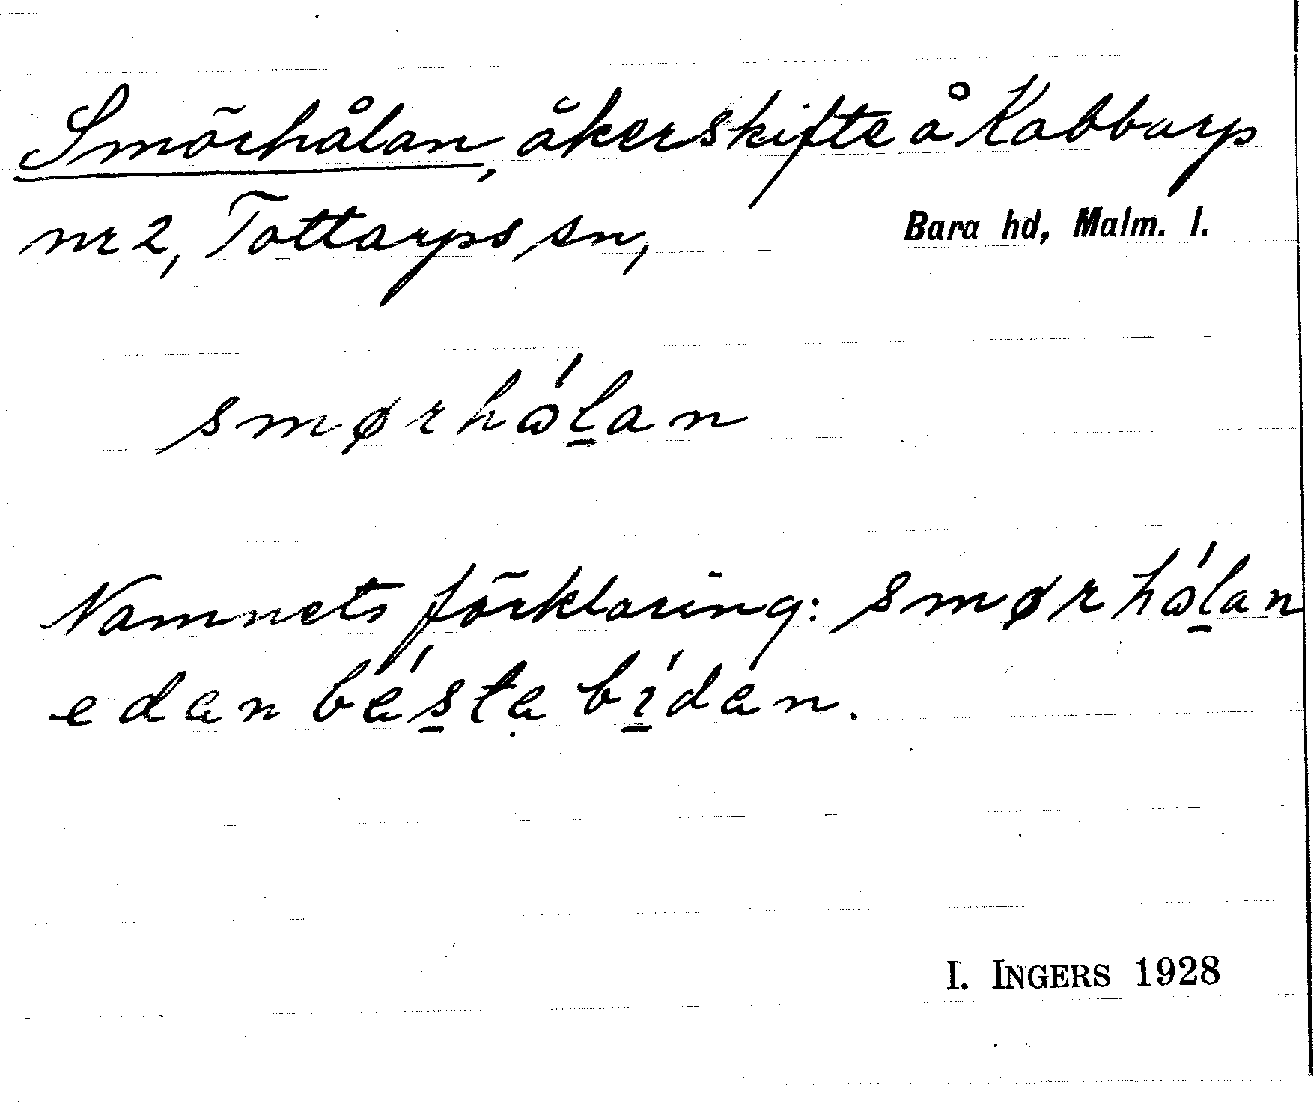 Smörhålan, åkerskifte å Kabbarp
nr 2, Tottarps sn, Bara hd, Malm. l.
smørhώl̲an
Namnets förklaring: smørhώl̲an
e dan bás̲ta bí̲dan.
I. INGERS 1928